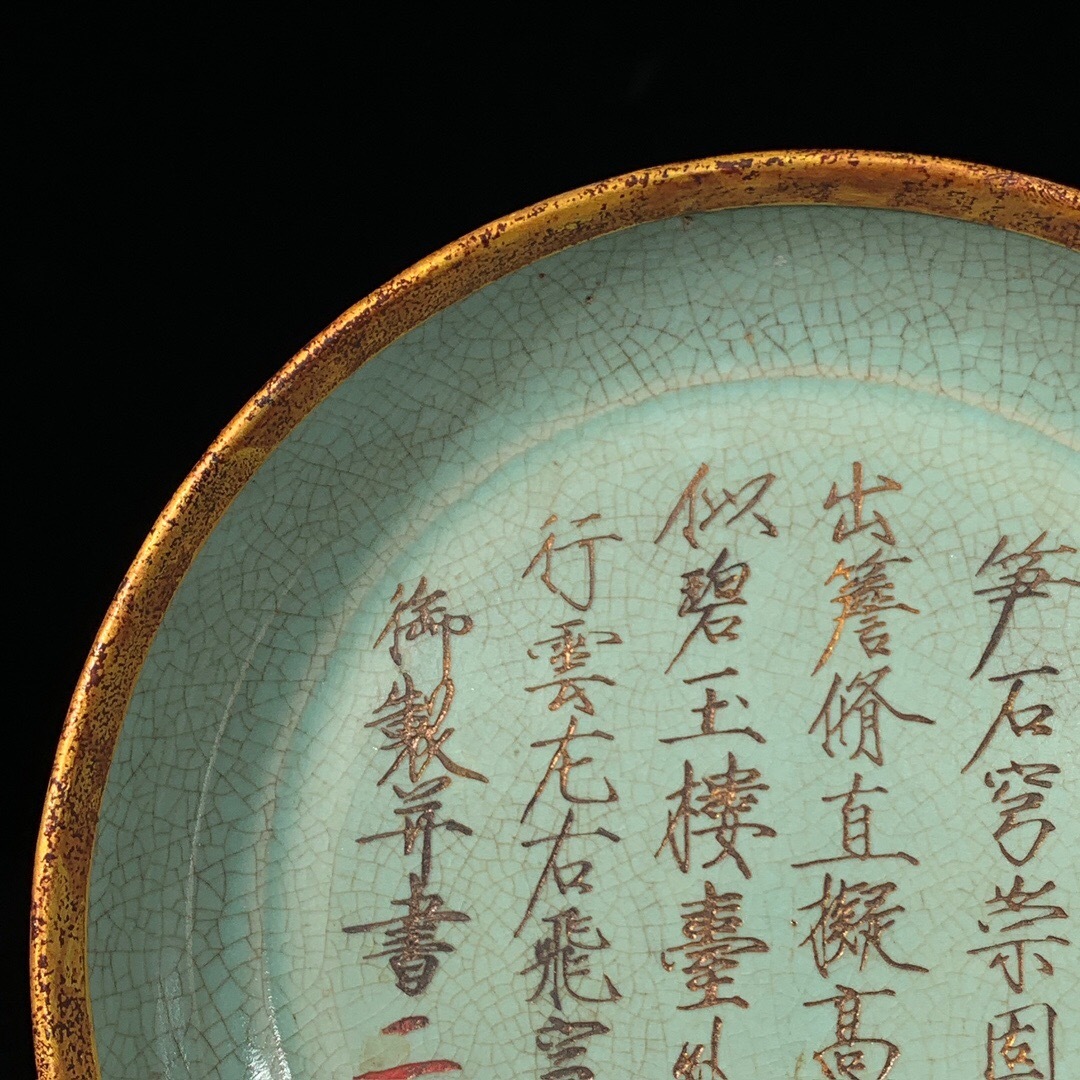 笋石穹崇固
出簷脩直擬高
似碧玉樓臺外
行雲左右飛
御製并書